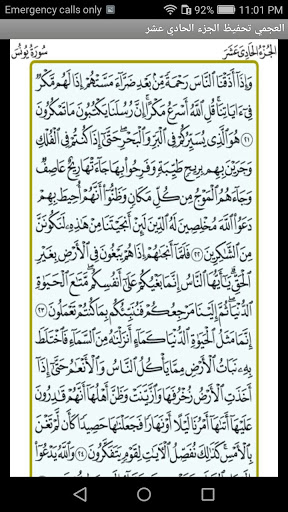 Emergency calls only 78% 11:01 PM
العجمي تحفيظ الجزء الحادي عشر
الجزء الحادي عشر سورة يونس
وَإِذَآ أَذَقْنَا ٱلنَّاسَ رَحْمَةً مِّنۢ بَعْدِ ضَرَّآءَ مَسَّتْهُمْ إِذَا لَهُم مَّكْرٌ
فِىٓ ءَايَاتِنَا ۚ قُلِ ٱللَّهُ أَسْرَعُ مَكْرًا ۚ إِنَّ رُسُلَنَا يَكْتُبُونَ مَا تَمْكُرُونَ
٢١ هُوَ ٱلَّذِى يُسَيِّرُكُمْ فِى ٱلْبَرِّ وَٱلْبَحْرِ ۖ حَتَّىٰٓ إِذَا كُنتُمْ فِى ٱلْفُلْكِ
وَجَرَيْنَ بِهِم بِرِيحٍ طَيِّبَةٍ وَفَرِحُوا۟ بِهَا جَآءَتْهَا رِيحٌ عَاصِفٌ
وَجَآءَهُمُ ٱلْمَوْجُ مِن كُلِّ مَكَانٍ وَظَنُّوٓا۟ أَنَّهُمْ أُحِيطَ بِهِمْ ۙ
دَعَوُا۟ ٱللَّهَ مُخْلِصِينَ لَهُ ٱلدِّينَ لَئِنْ أَنجَيْتَنَا مِنْ هَٰذِهِۦ لَنَكُونَنَّ
مِنَ ٱلشَّٰكِرِينَ ٢٢ فَلَمَّآ أَنجَىٰهُمْ إِذَا هُمْ يَبْغُونَ فِى ٱلْأَرْضِ بِغَيْرِ
ٱلْحَقِّ ۗ يَٰٓأَيُّهَا ٱلنَّاسُ إِنَّمَا بَغْيُكُمْ عَلَىٰٓ أَنفُسِكُم ۖ مَّتَٰعَ ٱلْحَيَوٰةِ
ٱلدُّنْيَا ۖ ثُمَّ إِلَيْنَا مَرْجِعُكُمْ فَنُنَبِّئُكُم بِمَا كُنتُمْ تَعْمَلُونَ ٢٣
إِنَّمَا مَثَلُ ٱلْحَيَوٰةِ ٱلدُّنْيَا كَمَآءٍ أَنزَلْنَٰهُ مِنَ ٱلسَّمَآءِ فَٱخْتَلَطَ
بِهِۦ نَبَاتُ ٱلْأَرْضِ مِمَّا يَأْكُلُ ٱلنَّاسُ وَٱلْأَنْعَٰمُ حَتَّىٰٓ إِذَآ أَخَذَتِ
ٱلْأَرْضُ زُخْرُفَهَا وَٱزَّيَّنَتْ وَظَنَّ أَهْلُهَآ أَنَّهُمْ قَٰدِرُونَ
عَلَيْهَآ أَتَىٰهَآ أَمْرُنَا لَيْلًا أَوْ نَهَارًا فَجَعَلْنَٰهَا حَصِيدًا كَأَن لَّمْ تَغْنَ
بِٱلْأَمْسِ ۚ كَذَٰلِكَ نُفَصِّلُ ٱلْءَايَٰتِ لِقَوْمٍ يَتَفَكَّرُونَ ٢٤ وَٱللَّهُ يَدْعُوٓا۟